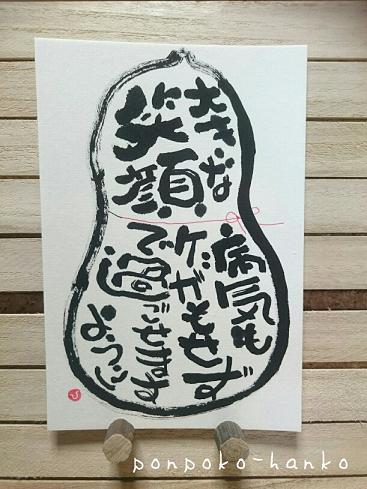 大きな
笑顔
病気も
ケガもせず
で過ごせます
ように
ponpoko-hanko